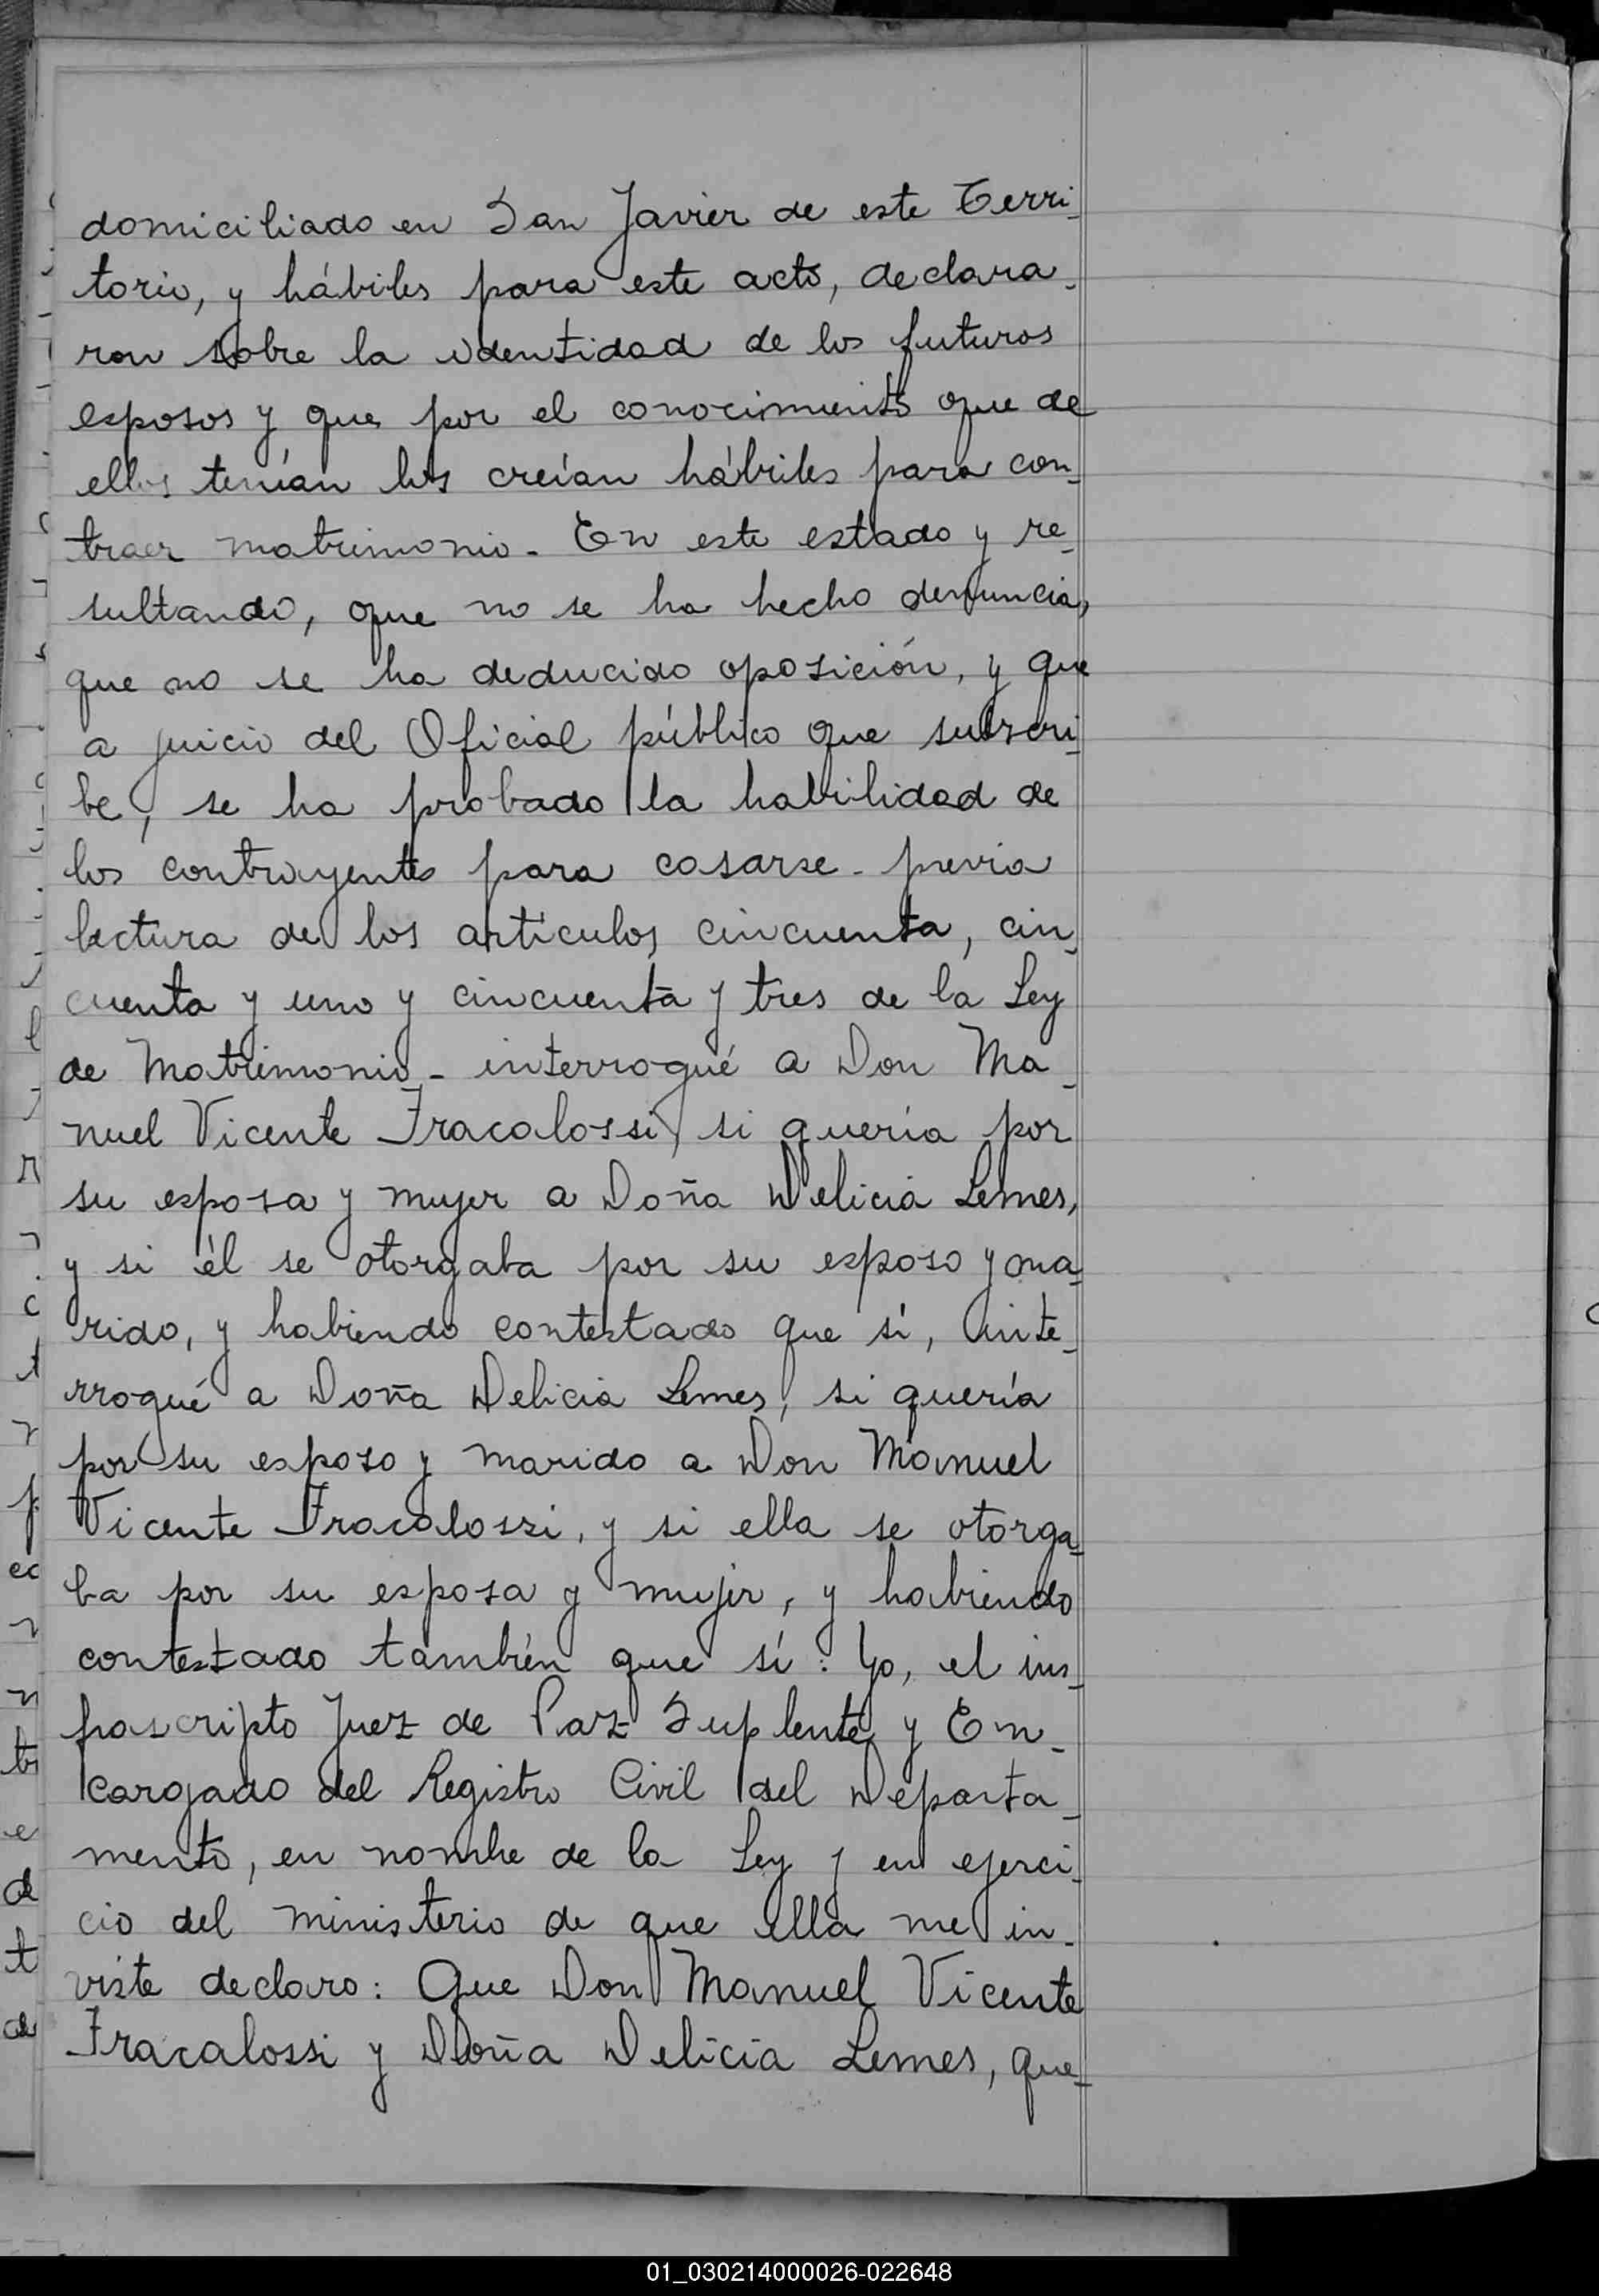 domiciliado en San Javier de este Terri-
torio, y hábiles para este acto, declara-
ron sobre la identidad de los futuros
esposos y que por el conocimiento que de
ellos tenían los creían hábiles para con-
traer matrimonio. En este estado y re-
sultando, que no se ha hecho denuncia,
que no se ha deducido oposición, y que
a juicio del Oficial público que suscri-
be, se ha probado la habilidad de
los contrayentes para casarse. previa
lectura de los artículos cincuenta, cin-
cuenta y uno y cincuenta y tres de la Ley
de Matrimonio - interrogué a Don Ma-
nuel Vicente Fracalossi, si quería por
su esposa y mujer a Doña Delicia Lemes,
y si él se otorgaba por su esposo y ma-
rido, y habiendo contestado que sí, inte-
rrogué a Doña Delicia Lemes, si quería
por su esposo y marido a Don Manuel
Vicente Fracalossi, y si ella se otorga-
ba por su esposa y mujer, y habiendo
contestado también que sí: Yo, el ins-
frascripto Juez de Paz Suplente y En-
cargado del Registro Civil del Departa-
mento, en nombre de la Ley y en ejerci-
cio del ministerio de que ella me in-
viste declaro: Que Don Manuel Vicente
Fracalossi y Doña Delicia Lemes, que-
01_030214000026-022648